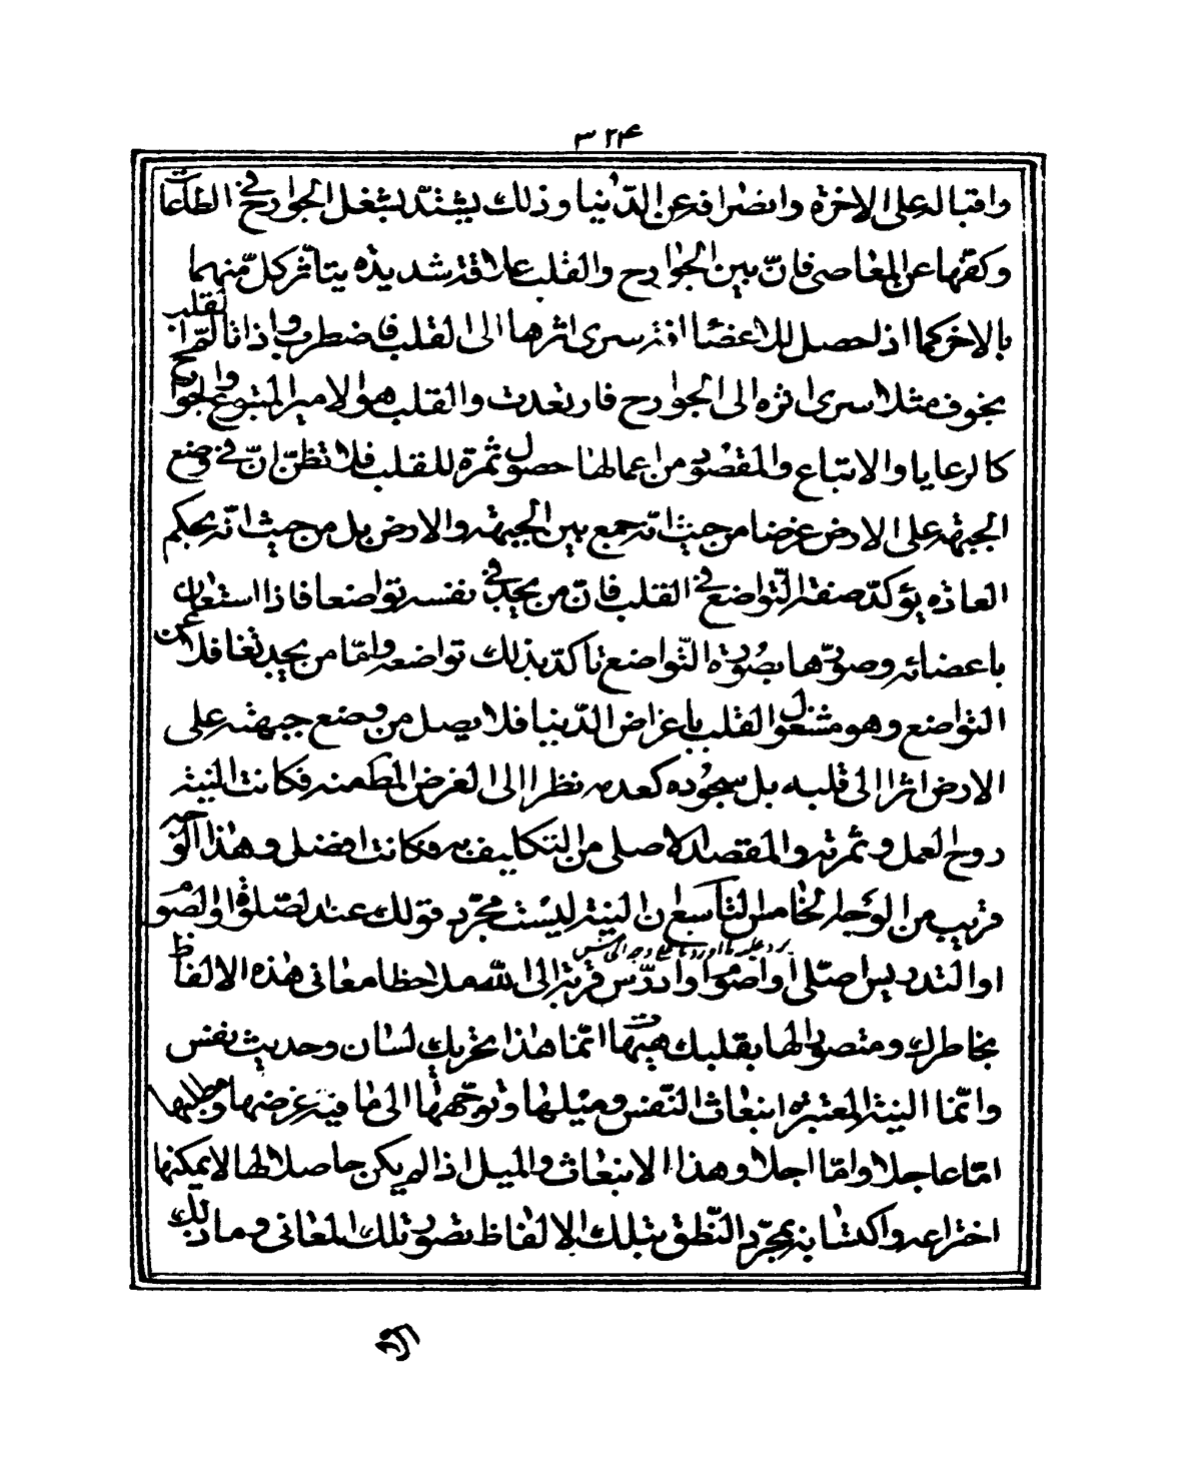 ٣٢۴
واقباله على الاخرة وانصرافه عن الدّنيا وذلك يشتدّ بشغل الجوارح في الطاعات
وكفّها عن المعاصى فانّ بين الجوارح والقلب علاقة شديدة يتاثر كلّ منهما
بالاخر كما اذا حصل للاعضاء افة سرى اثرها الى القلب فاضطرب واذا تالّم القلب
بخوف مثلا سرى اثره الى الجوارح فارتعدت والقلب هو الامير المتبوع والجوارح
كالرعايا والاتباع والمقصود من اعمالها حصول ثمرة للقلب فلا تظنّ انّ في وضع
الجبهة على الارض غرضا من حيث انّه جمع بين الجبهة والارض بل من حيث انّه بحكم
العادة يؤكّد صفة التّواضع في القلب فانّ من يجد في نفسه تواضعا فاذا استعان
باعضائه وصوّرها بصورة التّواضع تاكّد بذلك تواضعه وامّا من يجد غافلا عن
التواضع وهو مشغول القلب باغراض الدّنيا فلا يصل من وضع جبهته على
الارض اثر الى قلبه بل سجوده كعدمه نظرا الى الغرض المط منه فكانت النية
روح العمل وثمرته والمقصد الاصلى من التكليف به فكانت افضل وهذا الوجه
قريب من الوجه الخامس التاسع ان النية ليست مجرّد قولك عند الصّلوة او الصّوم
او التدريس اصلّى او اصوم او ادرّس قربة الى اللّه ملاحظا معانى هذه الالفاظ
بخاطرك ومتصوّرا لها بقلبك هيهات انّما هذا تحريك لسان وحديث نفس
وانّما النية المعتبرة انبعاث النّفس وميلها وتوجّهها الى ما فيه غرضها ومطلبها
امّا عاجلا وامّا اجلا وهذا الانبعاث والميل اذا لم يكن حاصلا لها لا يمكنها
اختراعه واكتسابه بمجرّد النّطق بتلك الالفاظ بتصوّر تلك المعانى وما ذلك